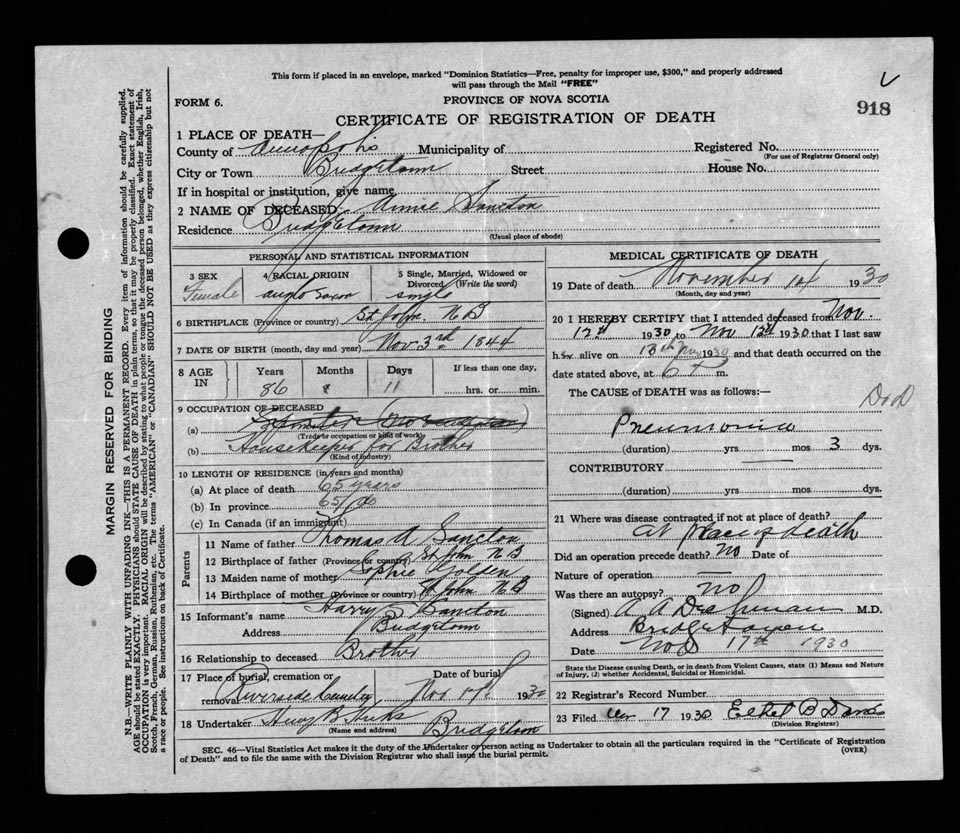 This form if placed in an envelope, marked "Dominion Statistics—Free, penalty for improper use, $300," and properly addressed
will pass through the Mail "FREE"
FORM 6.
PROVINCE OF NOVA SCOTIA
918
CERTIFICATE OF REGISTRATION OF DEATH
1 PLACE OF DEATH—
County of Annapolis Municipality of Registered No.
(For use of Registrar General only)
City or Town Bridgetown Street House No.
If in hospital or institution, give name
2 NAME OF DECEASED Annie Sancton
Residence Bridgetown
(Usual place of abode)
PERSONAL AND STATISTICAL INFORMATION
3 SEX 4 RACIAL ORIGIN 5 Single, Married, Widowed or
Divorced (Write the word)
Female anglo Saxon single
6 BIRTHPLACE (Province or country) St John. N B
7 DATE OF BIRTH (month, day and year) Nov 3rd 1844
8 AGE IN Years Months Days If less than one day,
86 11 hrs. or min.
9 OCCUPATION OF DECEASED
(a)
(Trade occupation or kind of work)
(b) Housekeeper for Brother
(Kind of industry)
10 LENGTH OF RESIDENCE (in years and months)
(a) At place of death 65 years
(b) In province 65 do
(c) In Canada (if an immigrant)
Parents
11 Name of father Thomas A Sancton
12 Birthplace of father (Province or country) St John N B
13 Maiden name of mother Sophie Golden
14 Birthplace of mother (Province or country) St John N B
15 Informant's name Harry Sancton
Address Bridgetown
16 Relationship to deceased Brother
17 Place of burial, cremation or Date of burial
removal Riverside Cemetry Nov 1930
18 Undertaker Henry B Hicks
(Name and address) Bridgetown
MEDICAL CERTIFICATE OF DEATH
19 Date of death November 14 1930
(Month, day and year)
20 I HEREBY CERTIFY that I attended deceased from Nov.
12th 1930 to Nov 13th 1930 that I last saw
her alive on 13th Nov 1930 and that death occurred on the
date stated above, at 6 m.
The CAUSE of DEATH was as follows:—
Pneumonia
(duration) yrs mos 3 dys.
CONTRIBUTORY
(duration) yrs. mos. dys.
21 Where was disease contracted if not at place of death?
At Place of death
Did an operation precede death? No Date of
Nature of operation —
Was there an autopsy? No
(Signed) A A Deshman M.D.
Address Bridgetown
Date Nov 17th 1930
State the Disease causing Death, or in death from Violent Causes, state (1) Means and Nature
of Injury, (2) whether Accidental, Suicidal or Homicidal.
22 Registrar's Record Number
23 Filed 17 1930 Ethel B Davis
(Division Registrar)
SEC. 46—Vital Statistics Act makes it the duty of the Undertaker or person acting as Undertaker to obtain all the particulars required in the "Certificate of Registration
of Death" and to file the same with the Division Registrar who shall issue the burial permit.
(OVER)
MARGIN RESERVED FOR BINDING
N.B.—WRITE PLAINLY WITH UNFADING INK—THIS IS A PERMANENT RECORD. Every item of information should be carefully supplied.
AGE should be stated EXACTLY. PHYSICIANS should STATE CAUSE OF DEATH in plain terms, so that it may be properly classified. Exact statement of
OCCUPATION is very important. RACIAL ORIGIN will be described by stating to what people or tongue the deceased person belonged, whether English, Irish,
Scotch, French, German, Russian, Ruthenian, etc. The terms "AMERICAN" or "CANADIAN" SHOULD NOT BE USED as they express citizenship but not
a race or people. See instructions on back of Certificate.